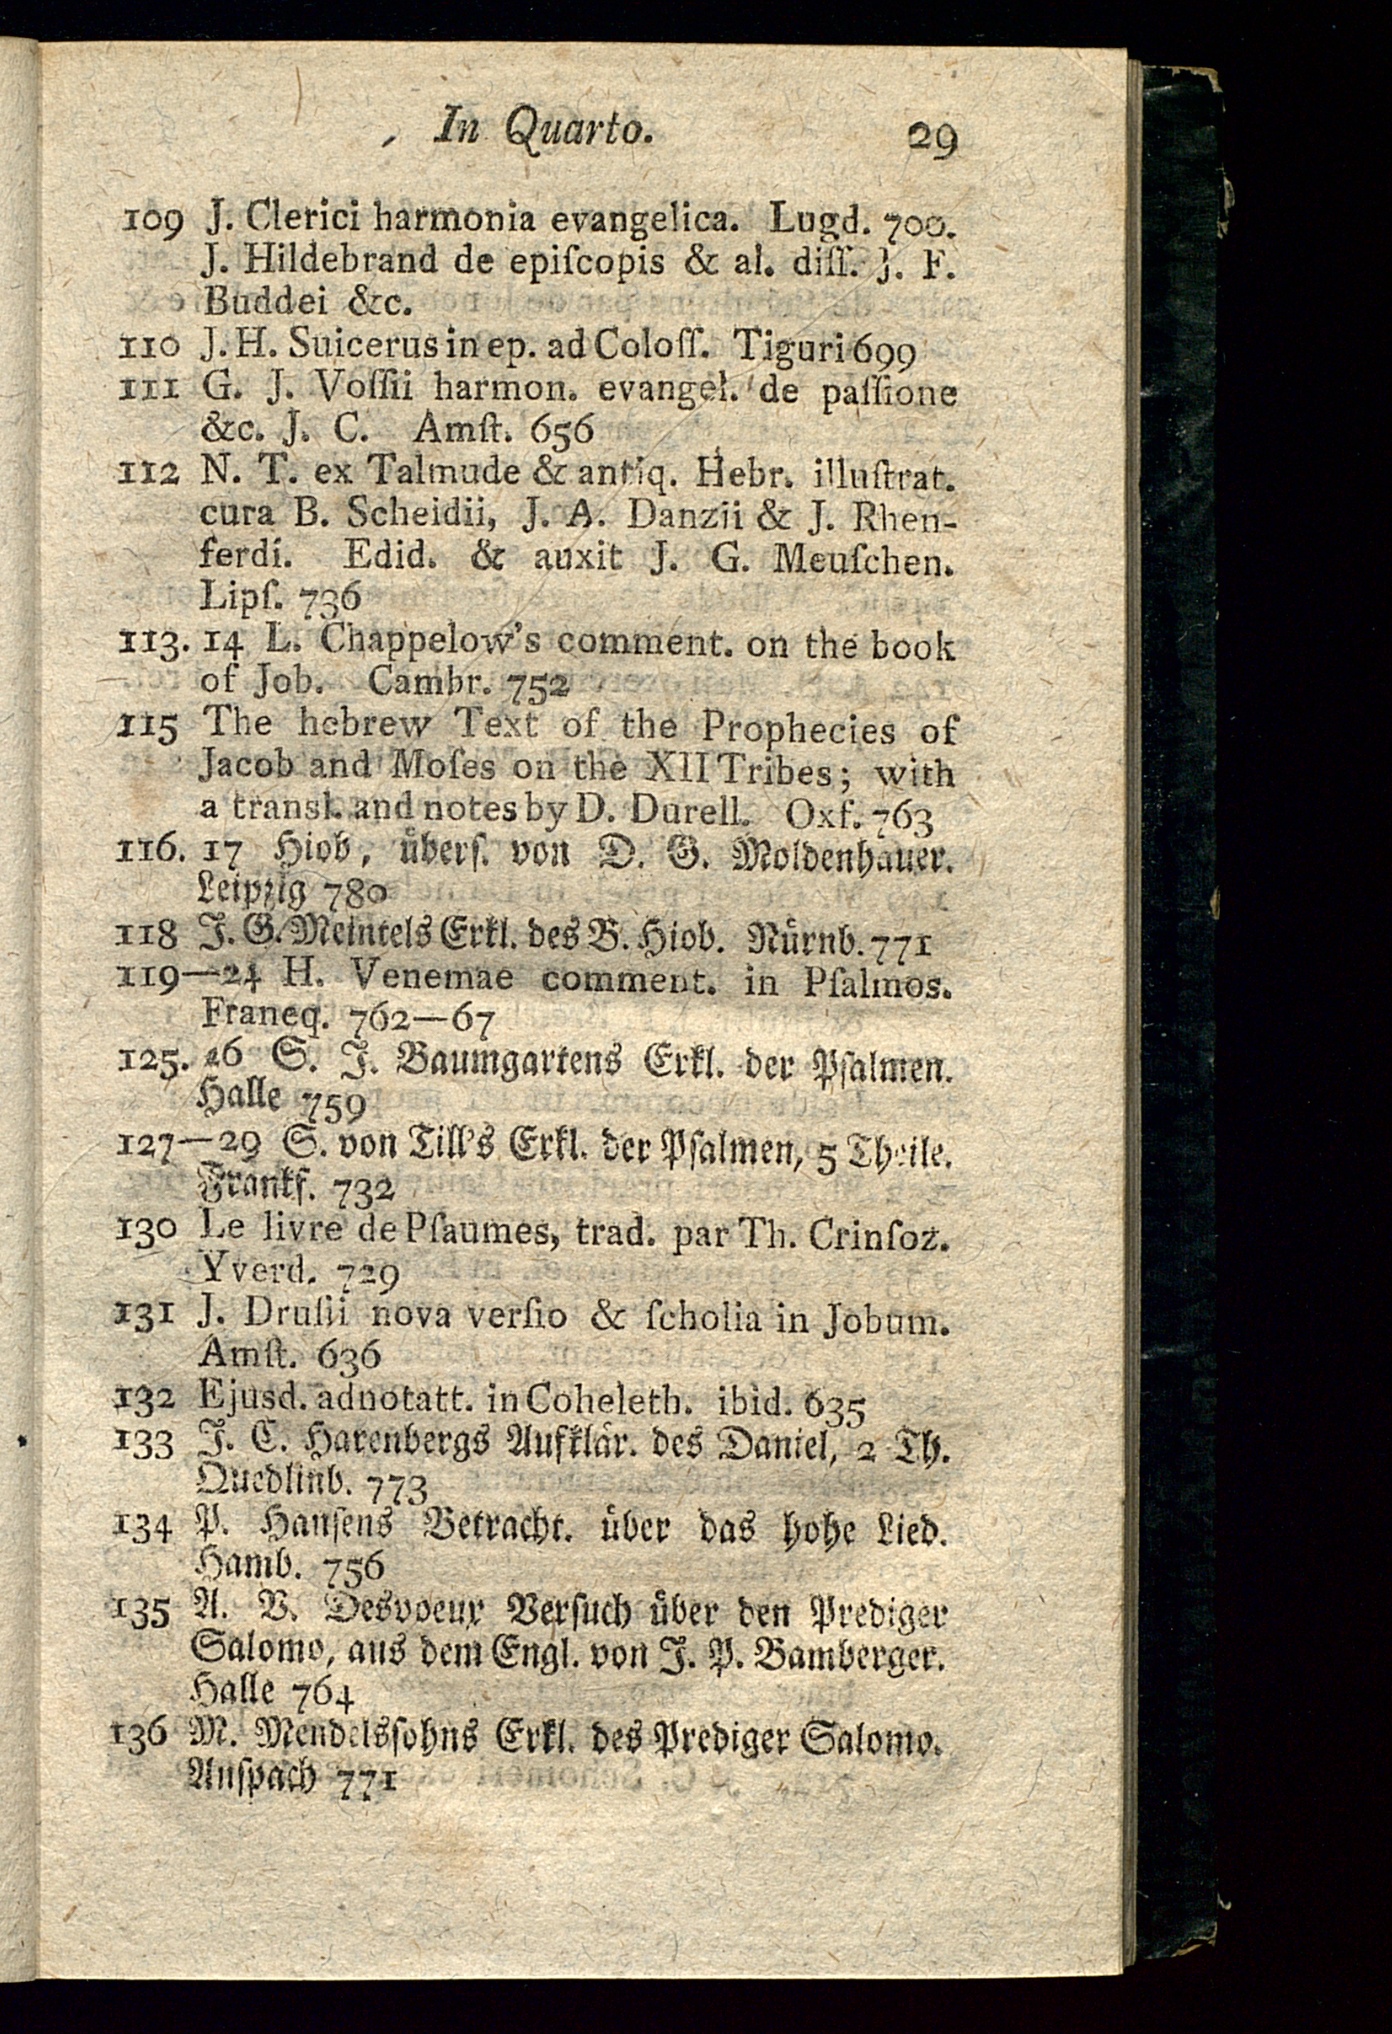 In Quarto. 29
109 J. Clerici harmonia evangelica. Lugd. 700.
J. Hildebrand de epiſcopis & al. diſſ. J. F.
Buddei &c.
110 J. H. Suicerus in ep. ad Coloſſ. Tiguri 699
111 G. J. Voſſii harmon. evangel. de paſſione
&c. J. C. Amſt. 656
112 N. T. ex Talmude & antiq. Hebr. illuſtrat.
cura B. Scheidii, J. A. Danzii & J. Rhen-
ferdi. Edid. & auxit J. G. Meuſchen.
Lipſ. 736
113. 14 L. Chappelow's comment. on the book
of Job. Cambr. 752
115 The hebrew Text of the Prophecies of
Jacob and Moſes on the XII Tribes; with
a transl. and notes by D. Durell. Oxf. 763
116. 17 Hiob, überſ. von D. G. Moldenhauer.
Leipzig 780
118 J. G. Meintels Erkl. des B. Hiob. Nürnb. 771
119—24 H. Venemae comment. in Pſalmos.
Franeq. 762—67
125. 26 S. J. Baumgartens Erkl. der Pſalmen.
Halle 759
127—29 S. von Till's Erkl. der Pſalmen, 5 Theile.
Frankf. 732
130 Le livre de Pſaumes, trad. par Th. Crinſoz.
Yverd. 729
131 J. Druſii nova verſio & ſcholia in Jobum.
Amſt. 636
132 Ejusd. adnotatt. in Coheleth. ibid. 635
133 J. C. Harenbergs Aufklär. des Daniel, 2 Th.
Quedlinb. 773
134 P. Hanſens Betracht. über das hohe Lied.
Hamb. 756
135 A. V. Desvoeux Verſuch über den Prediger
Salomo, aus dem Engl. von J. P. Bamberger.
Halle 764
136 M. Mendelsſohns Erkl. des Prediger Salomo.
Anſpach 771